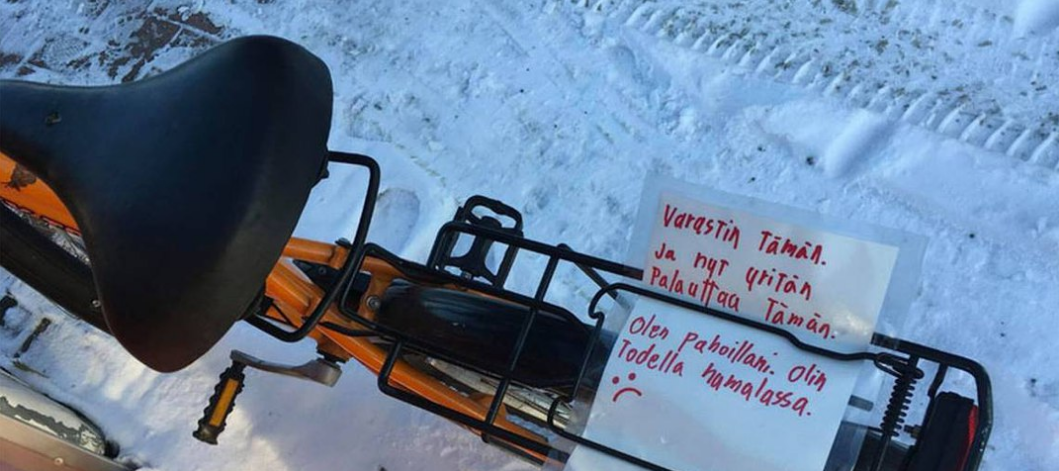 Varastin Tämän.
Ja nyt yritän
Palauttaa Tämän.
Olen Pahoillani. Olin
Todella humalassa.
:(